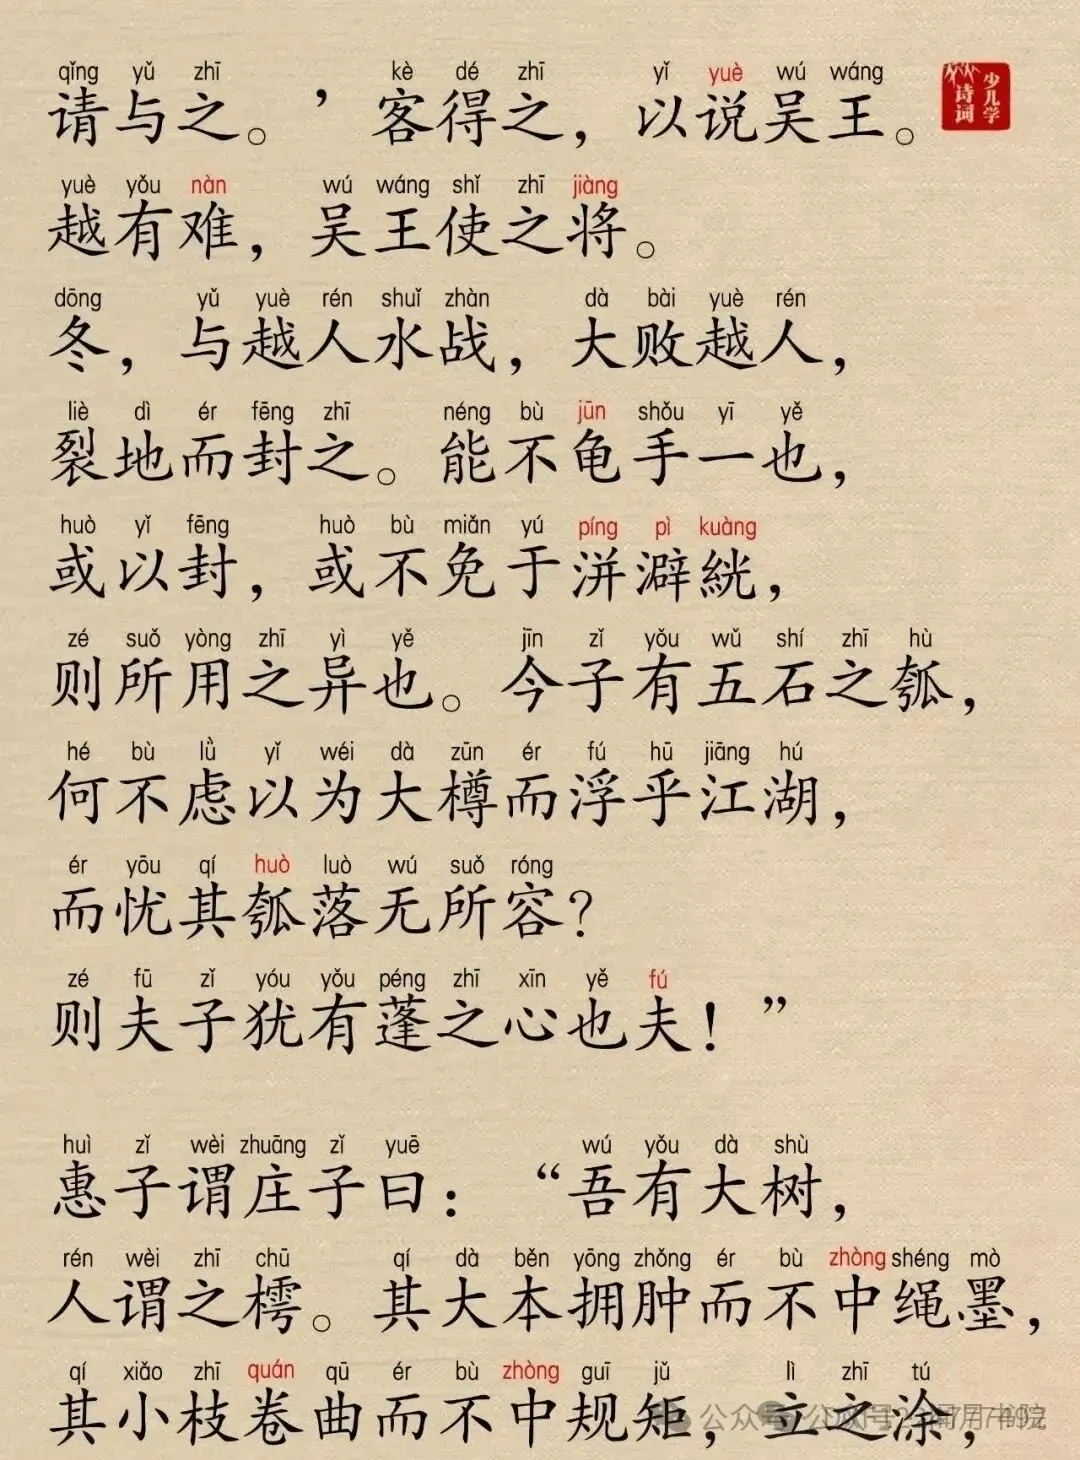 qǐng yǔ zhī kè dé zhī yǐ yuè wú wáng
请与之。’客得之，以说吴王。
少儿学诗词
yuè yǒu nàn wú wáng shǐ zhī jiàng
越有难，吴王使之将。
dōng yǔ yuè rén shuǐ zhàn dà bài yuè rén
冬，与越人水战，大败越人，
liè dì ér fēng zhī néng bù jūn shǒu yī yě
裂地而封之。能不龟手一也，
huò yǐ fēng huò bù miǎn yú píng pì kuàng
或以封，或不免于洴澼絖，
zé suǒ yòng zhī yì yě jīn zǐ yǒu wǔ shí zhī hù
则所用之异也。今子有五石之瓠，
hé bù lǜ yǐ wéi dà zūn ér fú hū jiāng hú
何不虑以为大樽而浮乎江湖，
ér yōu qí huò luò wú suǒ róng
而忧其瓠落无所容？
zé fū zǐ yóu yǒu péng zhī xīn yě fú
则夫子犹有蓬之心也夫！”
huì zǐ wèi zhuāng zǐ yuē wú yǒu dà shù
惠子谓庄子曰：“吾有大树，
rén wèi zhī chū qí dà běn yōng zhǒng ér bù zhòng shéng mò
人谓之樗。其大本拥肿而不中绳墨，
qí xiǎo zhī quán qū ér bù zhòng guī jǔ lì zhī tú
其小枝卷曲而不中规矩，立之涂，
公众号